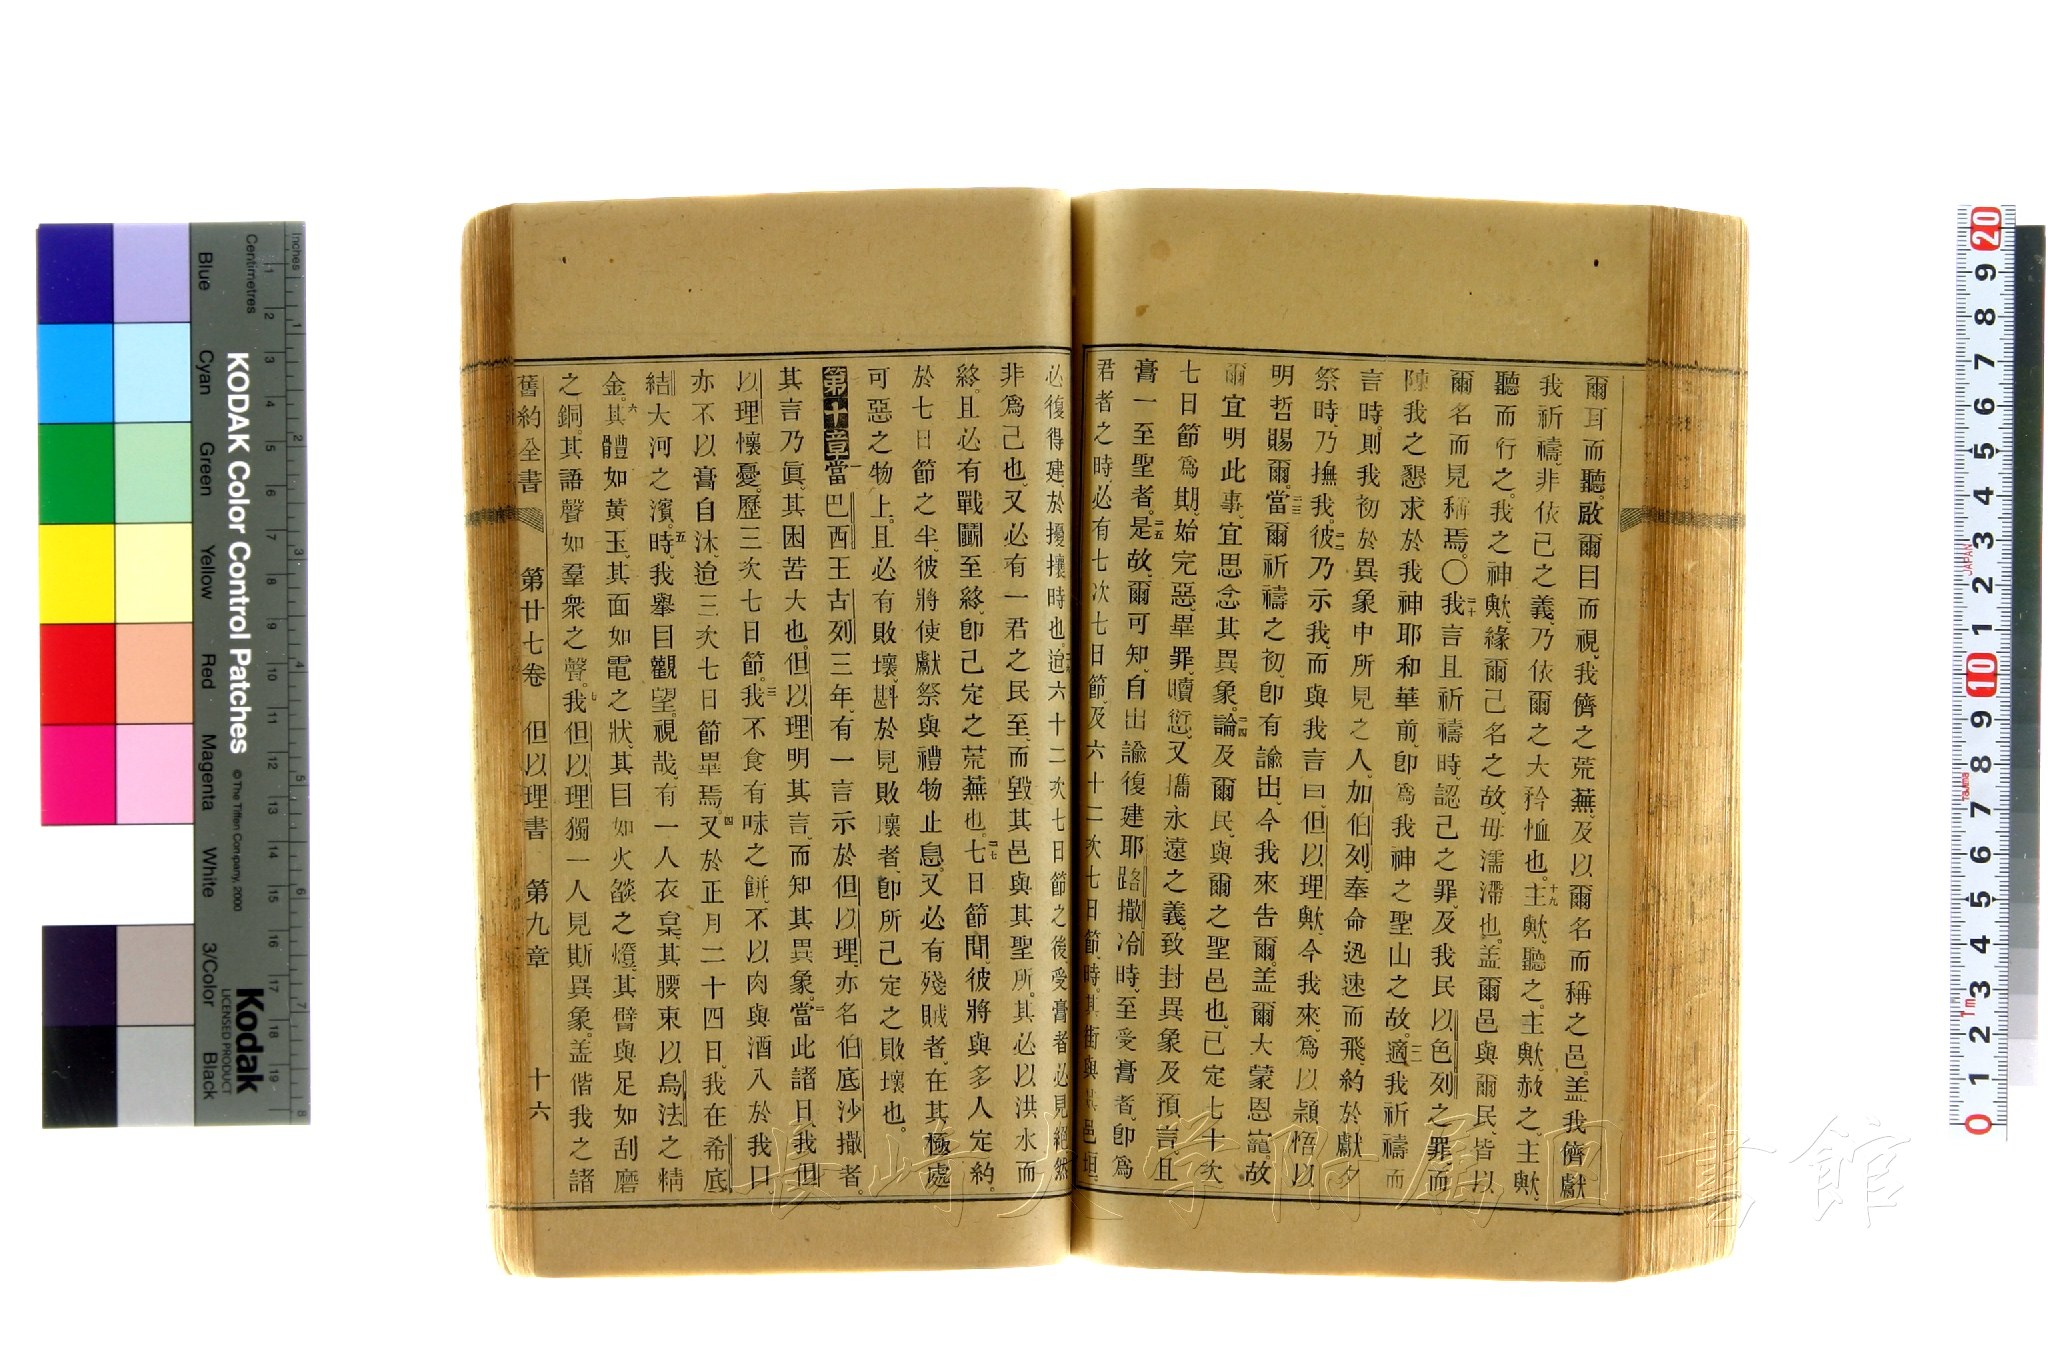 爾耳而聽。啟爾目而視、我儕之荒蕪、及以爾名而稱之邑。盖我儕獻
我祈禱、非依己之義、乃依爾之大矜恤也。十九主歟、聽之。主歟、赦之、主歟。
聽而行之。我之神歟、緣爾己名之故、毋濡滯也。盖爾邑與爾民皆以
爾名而見稱焉。〇二十我言且祈禱時、認己之罪、及我民以色列之罪、而
陳我之懇求於我神耶和華前、卽爲我神之聖山之故、二一適我祈禱而
言時、則我初於異象中所見之人、加伯列、奉命迅速而飛、約於獻夕
祭時、乃撫我。二二彼乃示我、而與我言曰、但以理歟、今我來、爲以穎悟以
明哲賜爾。二三當爾祈禱之初、卽有諭出、今我來告爾。盖爾大蒙恩寵。故
爾宜明此事、宜思念其異象。二四論及爾民、與爾之聖邑也、已定七十次
七日節爲期、始完惡、畢罪、贖愆、又攜永遠之義、致封異象及預言、且
膏一至聖者。二五是故、爾可知、自出諭復建耶路撒冷時、至受膏者、卽爲
君者之時、必有七次七日節、及六十二次七日節、時。其街與其邑垣
必復得建、於擾攘時也。二六迨六十二次七日節之後、受膏者必見絕、然
非爲己也、又必有一君之民至、而毀其邑與其聖所。其必以洪水而
終。且必有戰鬭至終、卽已定之荒蕪也。二七七日節間、彼將與多人定約。
於七日節之半、彼將使獻祭與禮物止息。又必有殘賊者、在其極處
可惡之物上。且必有敗壞、斟於見敗壞者、卽所已定之敗壞也。
第十章一當巴西王古列三年、有一言示於但以理、亦名伯底沙撒者。
其言乃眞、其困苦大也。但以理明其言、而知其異象。二當此諸日、我但
以理懷憂。歷三次七日節。三我不食有味之餅、不以肉與酒入於我口
亦不以膏自沐、迨三次七日節畢焉。四又於正月二十四日、我在希底
結大河之濱。五時、我舉目觀望。視哉、有一人衣枲、其腰束以烏法之精
金。六其體如黃玉、其面如電之狀、其目如火燄之燈、其臂與足如刮磨
之銅、其語聲如羣衆之聲。七我但以理獨一人見斯異象。盖偕我之諸
舊約全書 第廿七卷 但以理書 第九章 十六
KODAK Color Control Patches
© The Tiffen Company, 2000
Kodak
LICENSED PRODUCT
Inches
Centimetres
Blue Cyan Green Yellow Red Magenta White 3/Color Black
長崎大学附属図書館